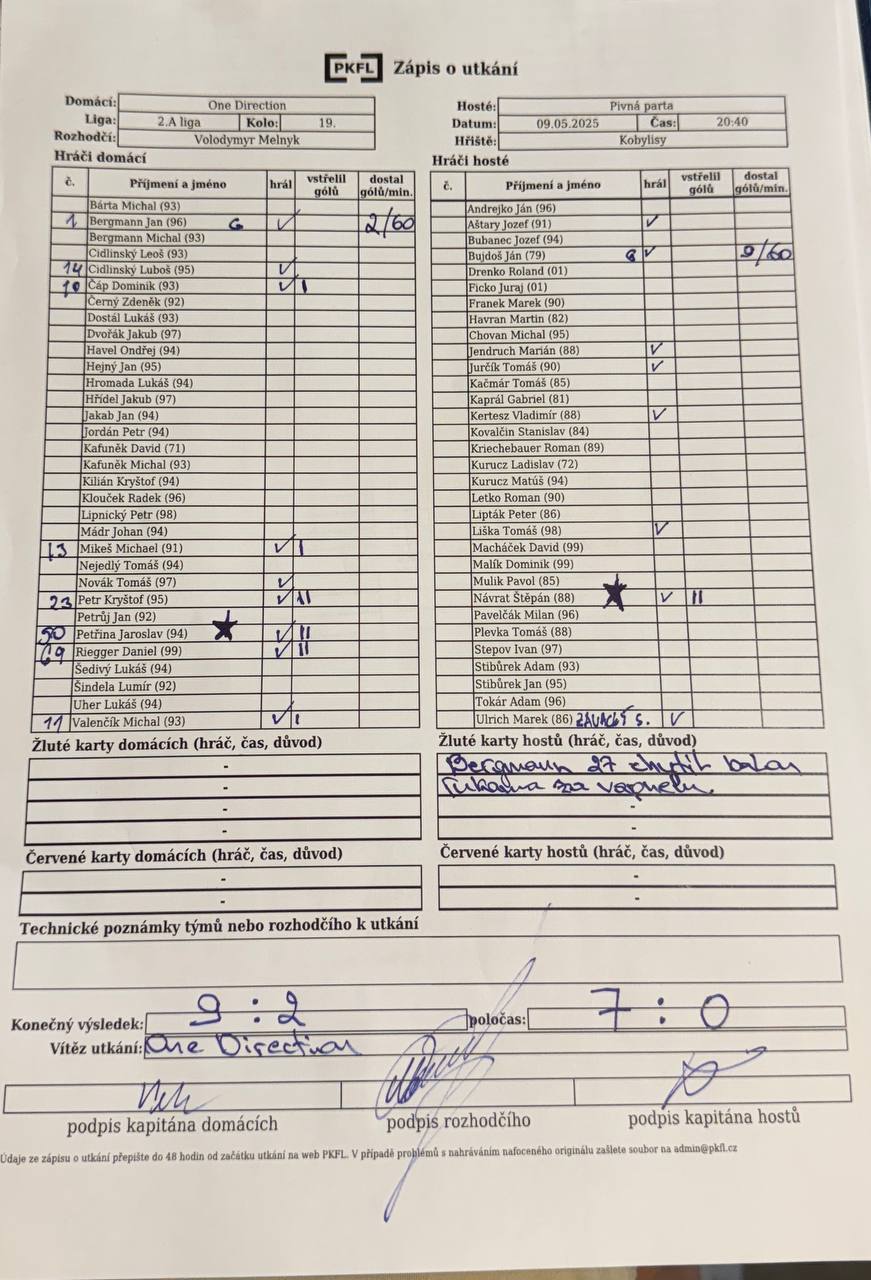 PKFL Zápis o utkání
Domácí: One Direction
Liga: 2.A liga Kolo: 19.
Rozhodčí: Volodymyr Melnyk
Hosté: Pivná parta
Datum: 09.05.2025 Čas: 20:40
Hřiště: Kobylisy
Hráči domácí
č. Příjmení a jméno hrál vstřelil gólů dostal gólů/min.
Bárta Michal (93)
1 Bergmann Jan (96) G ✓ 2/60
Bergmann Michal (93)
Cidlinský Leoš (93)
14 Cidlinský Luboš (95) ✓
10 Čáp Dominik (93) ✓ I
Černý Zdeněk (92)
Dostál Lukáš (93)
Dvořák Jakub (97)
Havel Ondřej (94)
Hejný Jan (95)
Hromada Lukáš (94)
Hřídel Jakub (97)
Jakab Jan (94)
Jordán Petr (94)
Kafuněk David (71)
Kafuněk Michal (93)
Kilián Kryštof (94)
Klouček Radek (96)
Lipnický Petr (98)
Mádr Johan (94)
13 Mikeš Michael (91) ✓ I
Nejedlý Tomáš (94)
Novák Tomáš (97) ✓
23 Petr Kryštof (95) ✓ II
Petrůj Jan (92)
90 Petřina Jaroslav (94) ★ ✓ II
69 Riegger Daniel (99) ✓ II
Šedivý Lukáš (94)
Šindela Lumír (92)
Uher Lukáš (94)
11 Valenčík Michal (93) ✓ I
Hráči hosté
č. Příjmení a jméno hrál vstřelil gólů dostal gólů/min.
Andrejko Ján (96)
Aštary Jozef (91) ✓
Bubanec Jozef (94)
Bujdoš Ján (79) G ✓ 9/60
Drenko Roland (01)
Ficko Juraj (01)
Franek Marek (90)
Havran Martin (82)
Chovan Michal (95)
Jendruch Marián (88) ✓
Jurčík Tomáš (90) ✓
Kačmár Tomáš (85)
Kaprál Gabriel (81)
Kertesz Vladimír (88) ✓
Kovalčin Stanislav (84)
Kriechebauer Roman (89)
Kurucz Ladislav (72)
Kurucz Matúš (94)
Letko Roman (90)
Lipták Peter (86)
Liška Tomáš (98) ✓
Macháček David (99)
Malík Dominik (99)
Mulik Pavol (85)
Návrat Štěpán (88) ★ ✓ II
Pavelčák Milan (96)
Plevka Tomáš (88)
Stepov Ivan (97)
Stibůrek Adam (93)
Stibůrek Jan (95)
Tokár Adam (96)
Ulrich Marek (86) S. ✓
Žluté karty domácích (hráč, čas, důvod)
-
-
-
-
Žluté karty hostů (hráč, čas, důvod)
Bergmann 27 chytil balon
rukama za
-
-
Červené karty domácích (hráč, čas, důvod)
-
-
Červené karty hostů (hráč, čas, důvod)
-
-
Technické poznámky týmů nebo rozhodčího k utkání
Konečný výsledek: 9 : 2 poločas: 7 : 0
Vítěz utkání: One Direction
podpis kapitána domácích podpis rozhodčího podpis kapitána hostů
Údaje ze zápisu o utkání přepište do 48 hodin od začátku utkání na web PKFL. V případě problémů s nahráváním nafoceného originálu zašlete soubor na admin@pkfl.cz